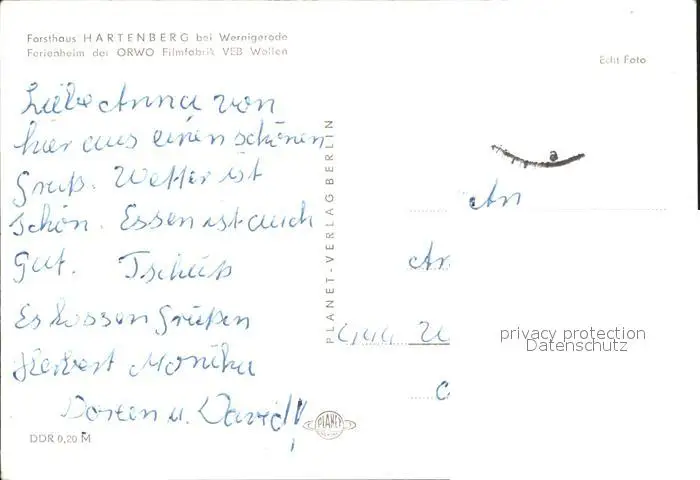 Forsthaus HARTENBERG bei Wernigerode
Ferienheim der ORWO Filmfabrik VEB Wolfen
Echt Foto
Liebe Anna von
hier aus einen schönen
Gruß. Wetter ist
schön. Essen ist auch
gut. Tschüß
Es lassen Grüßen
Herbert Monika
Doreen u. David!
DDR 0,20 M
PLANET-VERLAG BERLIN
PLANET
a
An
privacy protection
Datenschutz